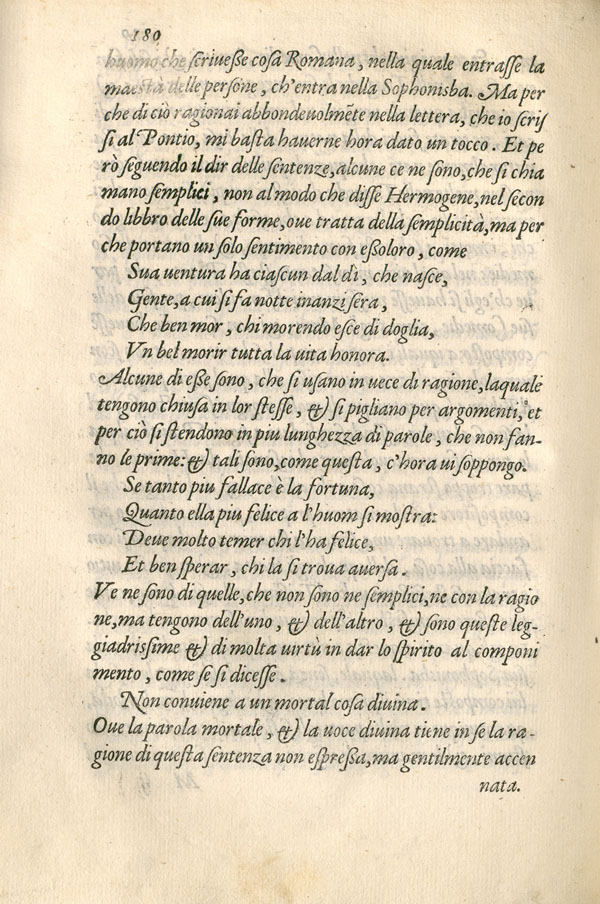 180
huomo che scriuesse cosa Romana, nella quale entrasse la
maestà delle persone, ch'entra nella Sophonisba. Ma per
che di ciò ragionai abbondeuolmẽte nella lettera, che io scris
si al Pontio, mi basta hauerne hora dato un tocco. Et pe
rò seguendo il dir delle sentenze, alcune ce ne sono, che si chia
mano semplici, non al modo che disse Hermogene, nel secon
do libbro delle sue forme, oue tratta della semplicità, ma per
che portano un solo sentimento con essoloro, come
Sua uentura ha ciascun dal dì, che nasce,
Gente, a cui si fa notte inanzi sera,
Che ben mor, chi morendo esce di doglia,
Vn bel morir tutta la uita honora.
Alcune di esse sono, che si usano in uece di ragione, laquale
tengono chiusa in lor stesse, & si pigliano per argomenti, et
per ciò si stendono in piu lunghezza di parole, che non fan-
no le prime: & tali sono, come questa, c'hora ui soppongo.
Se tanto piu fallace è la fortuna,
Quanto ella piu felice a l'huom si mostra:
Deue molto temer chi l'ha felice,
Et ben sperar, chi la si troua auersa.
Ve ne sono di quelle, che non sono ne semplici, ne con la ragio
ne, ma tengono dell'uno, & dell'altro, & sono queste leg-
giadrissime & di molta uirtù in dar lo spirito al componi
mento, come se si dicesse.
Non conuiene a un mortal cosa diuina.
Oue la parola mortale, & la uoce diuina tiene in se la ra-
gione di questa sentenza non espressa, ma gentilmente accen
nata.